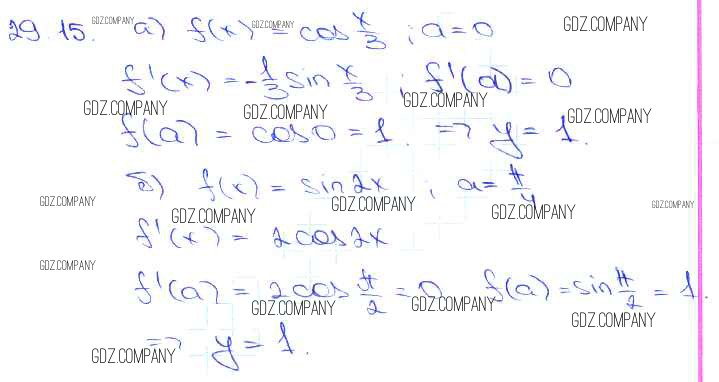 29.15. а) f(x) = cos x/3 ; a=0
f'(x) = -1/3 sin x/3 ; f'(a) = 0
f(a) = cos 0 = 1. => y = 1.
б) f(x) = sin 2x ; a = π/4
f'(x) = 2 cos 2x
f'(a) = 2 cos π/2 = 0 f(a) = sin π/2 = 1.
=> y = 1.
GDZ.COMPANY GDZ.COMPANY GDZ.COMPANY
GDZ.COMPANY GDZ.COMPANY GDZ.COMPANY GDZ.COMPANY
GDZ.COMPANY GDZ.COMPANY GDZ.COMPANY GDZ.COMPANY GDZ.COMPANY
GDZ.COMPANY GDZ.COMPANY GDZ.COMPANY GDZ.COMPANY
GDZ.COMPANY